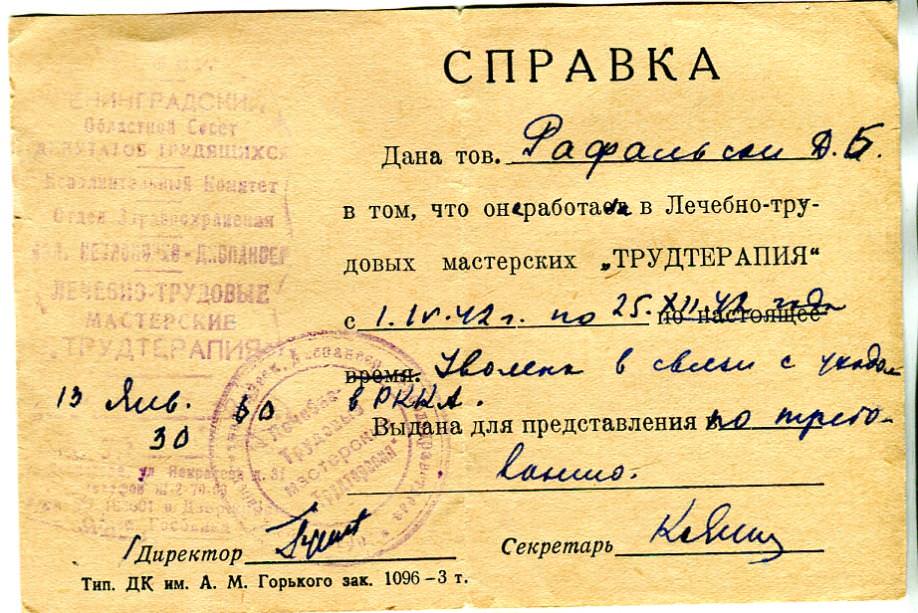 СПРАВКА
ЛЕНИНГРАДСКИЙ
Областной Совет
ДЕПУТАТОВ ТРУДЯЩИХСЯ
Исполнительный Комитет
Отдел Здравоохранения
ЛЕЧЕБНО-ТРУДОВЫЕ
МАСТЕРСКИЕ
"ТРУДТЕРАПИЯ"
13 Янв. 50
30
ул Некрасова
Дана тов. Рафальской Д. Б.
в том, что она работала в Лечебно-тру-
довых мастерских „ТРУДТЕРАПИЯ“
с 1.IV.42 г. по 25.XII.42 года по настоящее
время. Уволена в связи с уходом
в РККА.
Выдана для представления по требо-
ванию.
Лечебно-
Трудовые
мастерские
"Трудтерапия"
Директор
Секретарь
Тип. ДК им. А. М. Горького зак. 1096-3 т.